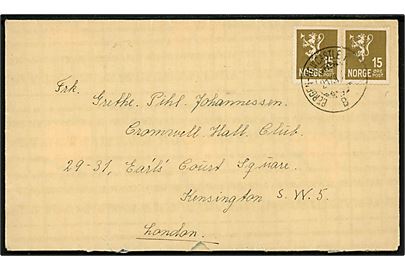 15
NORGE
15
NORGE
Frk.
Grethe. Pihl. Johannessen.
Cromwell. Hall. Club.
29-31, Earls' Court Square.
Kensington S.W.5.
London.